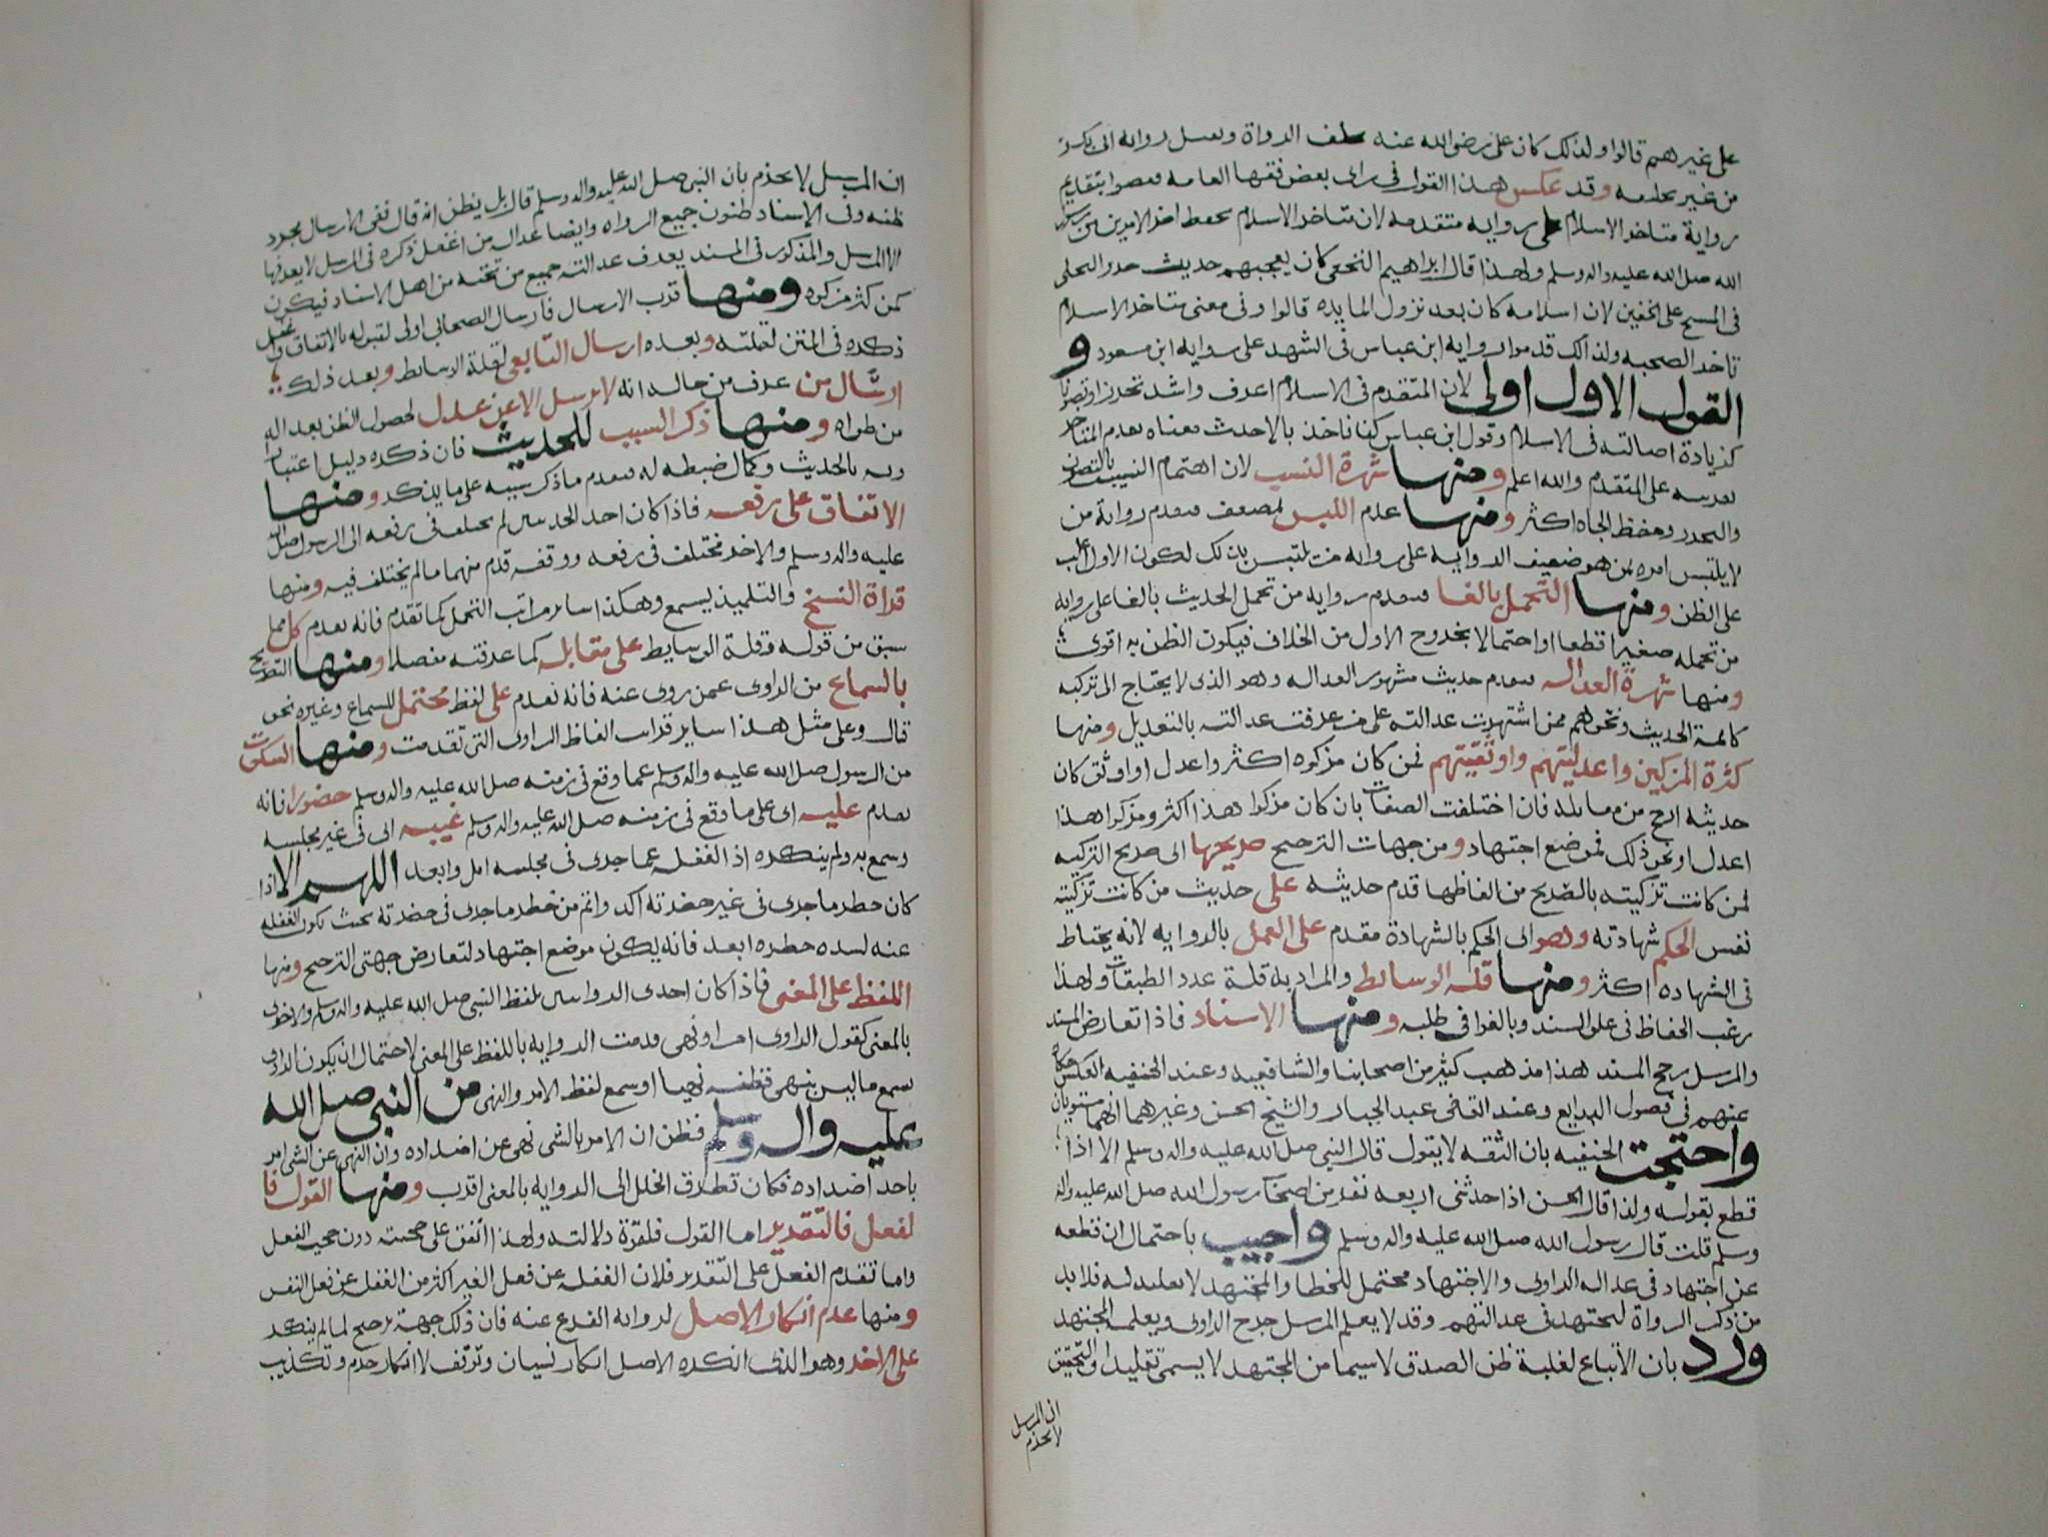 على غيرهم قالوا ولذلك كان على رضى الله عنه الرواة
من غير وقد عكس هذا القول فى راى بعض فقها العامه بتقديم
رواية متاخر الاسلام على روايه متقدمه لان متاخر الاسلام يحفظ اخر الامرين من رسول
الله صلى الله عليه واله وسلم ولهذا قال ابراهيم النخعى كان يعجبهم حديث
فى المسح على الخفين لان اسلامه كان بعد نزول المايده قالوا وفى معنى متاخر الاسلام
تاخر الصحبه ولذالك قدموا روايه ابن عباس فى التشهد على روايه ابن مسعود و
القول الاول اولى لان المتقدم فى الاسلام اعرف واشد تحرزا وتصونا
كزيادة اصالته فى الاسلام وقول ابن عباس كنا ناخذ بالاحدث معناه
على المتقدم والله اعلم ومنها شهرة النسب لان اهتمام النسيب بالتصون
والتحرز وحفظ الجاه اكثر ومنها عدم اللبس لمضعف فيقدم رواية من
لا يلتبس امره بمن هو ضعيف الروايه على روايه من يلتبس بذلك لكون الاول اغلب
على الظن ومنها التحمل بالغا فيقدم روايه من تحمل الحديث بالغا على روايه
من تحمله صغيرا قطعا او احتمالا بخروج الاول من الخلاف فيكون الظن به اقوى
ومنها شهرة العداله فيقدم حديث مشهور العداله وهو الذى لا يحتاج الى تزكيه
كائمة الحديث ونحوهم ممن اشتهرت عدالته على من عرفت عدالته بالتعديل ومنها
كثرة المزكين واعدليتهم واوثقيتهم فمن كان مزكوه اكثر واعدل او اوثق كان
حديثه ارجح من مقابله فان اختلفت الصفات بان كان مزكوا هذا اكثر ومزكوا هذا
اعدل او نحو ذلك فموضع اجتهاد ومن جهات الترجيح صريحها اى صريح التزكيه
لمن كانت تزكيته بالصريح من الفاظها قدم حديثه على حديث من كانت تزكيته
نفس الحكم شهادته وهو اى الحكم بالشهادة مقدم على العمل بالروايه لانه يحتاط
فى الشهاده اكثر ومنها قله الوسائط والمراد به قلة عدد الطبقات ولهذا
رغب الحفاظ فى علو السند وبالغوا فى طلبه ومنها الاسناد فاذا تعارض المسند
والمرسل رجح المسند هذا مذهب كثير من اصحابنا والشافعيه وعند الحنفيه العكس حكاه
عنهم فى فصول البدايع وعند القاضى عبد الجبار والشيخ الحسن وغيرهما انهما مستويان
واحتجت الحنفيه بان الثقه لا يقول قال النبى صلى الله عليه واله وسلم الا اذا
قطع بقوله ولذا قال الحسن اذا حدثنى اربعه نفر من اصحاب رسول الله صلى الله عليه واله
وسلم قلت قال رسول الله صلى الله عليه واله وسلم واجيب باحتمال ان قطعه
عن اجتهاد فى عداله الراوى والاجتهاد محتمل للخطا والمجتهد لا تقليد له فلا بد
من ذكر الرواة ليجتهد فى عدالتهم وقد لا يعلم المرسل جرح الراوى ويعلمه المجتهد
ورد بان الاتباع لغلبة ظن الصدق لا سيما من المجتهد لا يسمى تقليدا والتحقيق
ان المرسل
لا يجزم
ان المرسل لا يجزم بان النبى صلى الله عليه واله وسلم قال بل يظن انه قال ففى الارسال مجرد
ظنه وفى الاسناد ظنون جميع الرواه وايضا عداله من اغفل ذكره فى المرسل لا يعرفها
الا المرسل والمذكور فى المسند يعرف عدالته جميع من تحته من اهل الاسناد فيكون
كمن كثر مزكوه ومنها قرب الارسال فارسال الصحابى اولى لقبوله بالاتفاق
ذكره فى المتن لقلته وبعده ارسال التابعى لقلة الوسائط وبعد ذلك
ارسال من عرف من حاله انه لا يرسل الا عن عدل لحصول الظن بعداله
من طواه ومنها ذكر السبب للحديث فان ذكره دليل اعتبار
وربه بالحديث وكمال ضبطه له فيقدم ما ذكر سببه على ما يذكر ومنها
الاتفاق على رفعه فاذا كان احد الحديثين لم يختلف فى رفعه الى الرسول صلى الله
عليه واله وسلم والاخر مختلف فى رفعه ووقفه قدم منهما ما لم يختلف فيه ومنها
قراة الشيخ والتلميذ يسمع وهكذا ساير مراتب التحمل كما تقدم فانه يقدم كل مما
سبق من قوله وقلة الوسايط على مقابله كما عرفته مفصلا ومنها التصريح
بالسماع من الراوى عمن روى عنه فانه يقدم على لفظ محتمل للسماع وغيره نحو
قال وعلى مثل هذا ساير الفاظ الراوى التى تقدمت ومنها السكوت
من الرسول صلى الله عليه واله وسلم عما وقع فى زمنه صلى الله عليه واله وسلم حضورا فانه
يقدم عليه اى على ما وقع فى زمنه صلى الله عليه واله وسلم غيبه اى فى غير مجلسه
وسمع به ولم ينكره اذ الغفله عما جرى فى مجلسه اقل وابعد اللهم الا اذا
كان خطر ما جرى فى غير حضرته اكد واتم من خطر ما جرى فى حضرته بحيث تكون الغفله
عنه لشده خطره ابعد فانه يكون موضع اجتهاد لتعارض جهتى الترجيح ومنها
اللفظ على المعنى فاذا كان احدى الروايتين بلفظ النبى صلى الله عليه واله وسلم والاخرى
بالمعنى كقول الراوى امر او نهى قدمت الروايه باللفظ على المعنى لاحتمال ان يكون الراوى
سمع ما ليس بنهى فظنه نهيا او سمع لفظ الامر والنهى من النبى صلى الله
عليه واله وسلم فظن ان الامر بالشى نهى عن اضداده وان النهى عن الشى امر
باحد اضداده فكان تطرق الخلل الى الروايه بالمعنى اقرب ومنها القول فا
لفعل فالتقدير اما القول فلقوة دلالته ولهذا اتفق على حجيته دون حجيه الفعل
واما تقدم الفعل على التقدير فلان الغفله عن فعل الغير اكثر من الغفله عن فعل النفس
ومنها عدم انكار الاصل لروايه الفرع عنه فان ذلك جهة ترجيح لما لم ينكر
على الاخر وهو الذى انكره الاصل انكار نسيان وتوقف لا انكار جزم وتكذيب